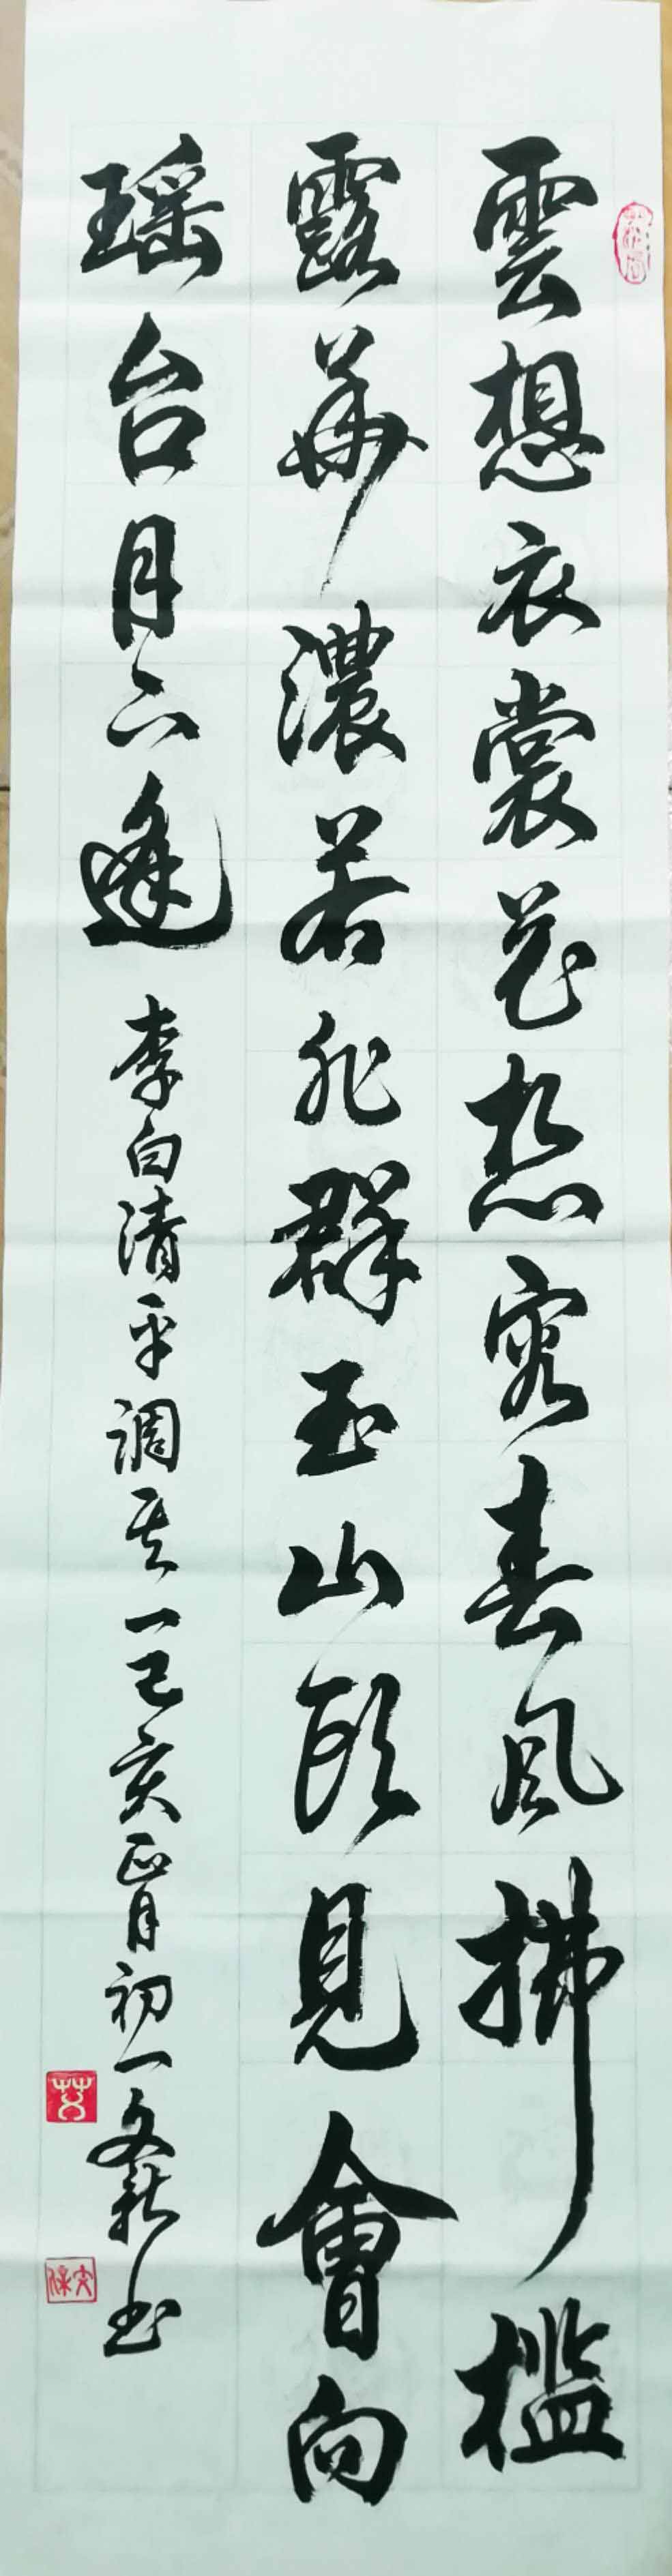 雲想衣裳花想容春風拂檻
露華濃若非群玉山頭見會向
瑶台月下逢 李白清平調其一己亥正月初一文
書